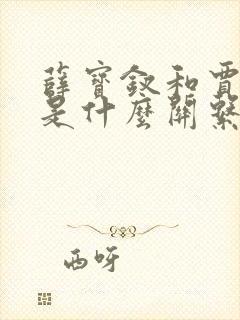 薛寶釵和賈
是什麼關繫
西呀